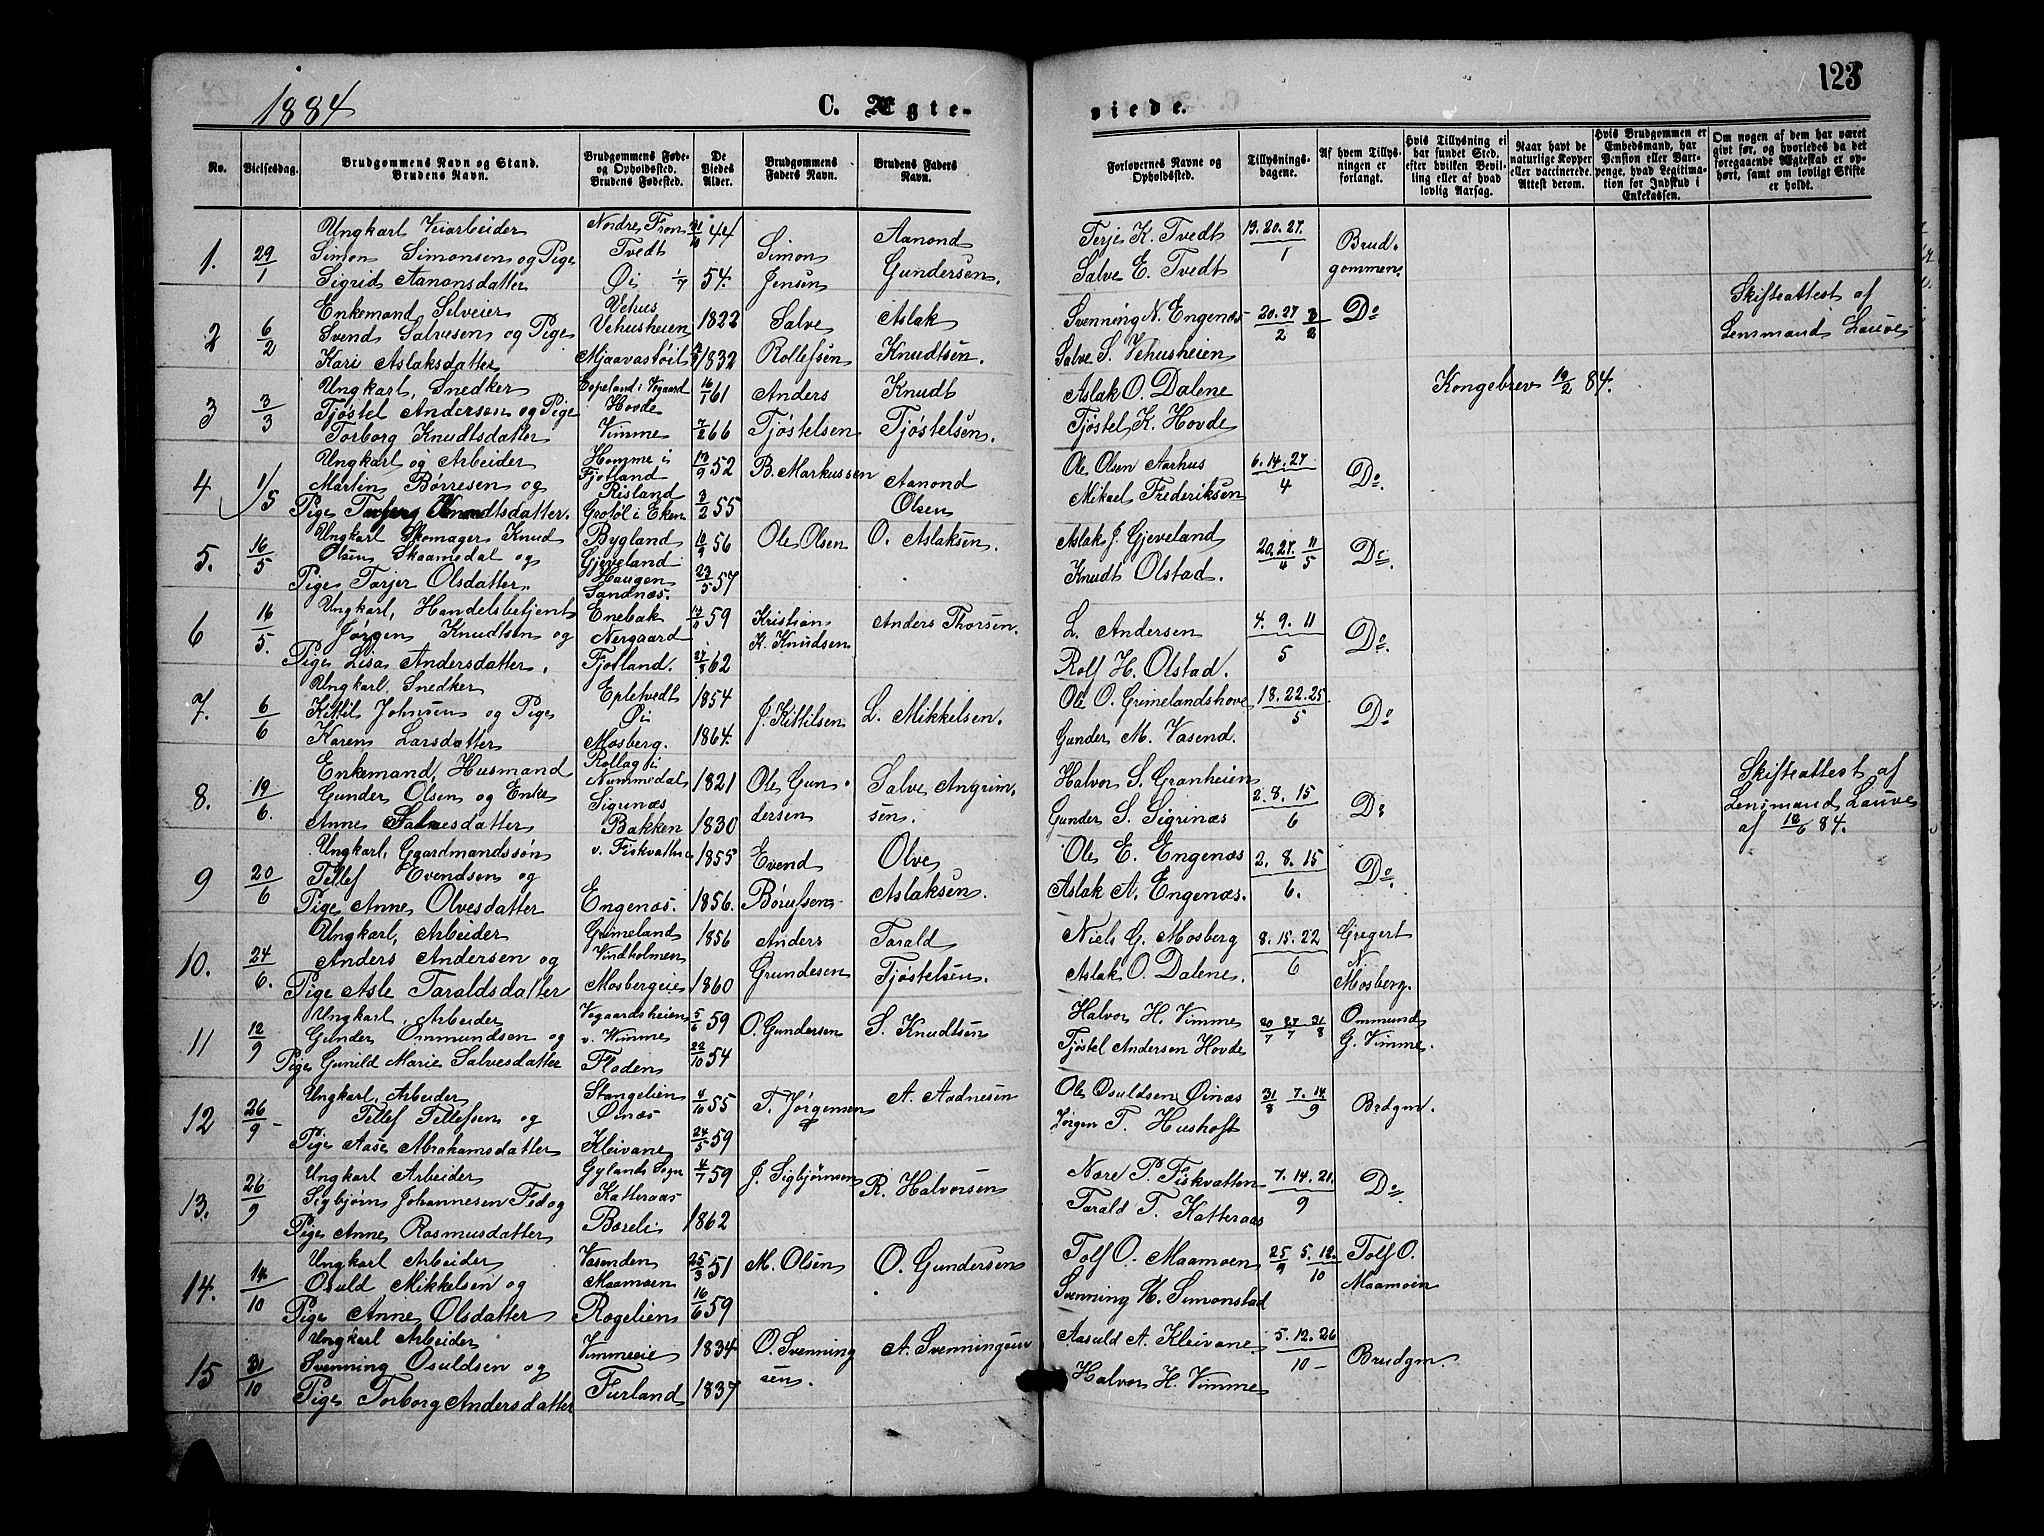 1884
C. Ægte-
viede.
123
No.
Vielsesdag.
Brudgommens Navn og Stand.
Brudens Navn.
Brudgommens Føde-
og Opholdssted.
Brudens Fødested.
De
Viedes
Alder.
Brudgommens
Faders Navn.
Brudens Faders
Navn.
Forlovernes Navne og
Opholdssted.
Tillysnings-
dagene.
Af hvem Tillys-
ningen er
forlangt.
Hvis Tillysning ei
har fundet Sted,
efter hvilken Bevil-
ling eller af hvad
lovlig Aarsag.
Naar havt de
naturlige Kopper
eller vaccinerede.
Attest derom.
Hvis Brudgommen er
Embedsmand, har
Pension eller Vart-
penge, hvad Legitima-
tion for Indskud i
Enkekassen.
Om nogen af dem har været
gift før, og hvorledes da det
foregaaende Ægteskab er op-
hørt, samt om lovligt Skifte
er holdt.
1. 29/1
Ungkarl Veiarbeider
Simon Simonsen og Pige
Sigrid Aanonsdatter
Nordre Fron
Tvedt
Øi
44
1/7 54.
Simon
Jensen
Aanond
Gundersen.
Terje K. Tvedt
Salve E. Tvedt
13. 20. 27.
1
Brud-
gommen
2 6/2
Enkemand Selveier
Svend Salvesen og Pige
Kari Aslaksdatter
Vehus
Vehusheien
Mjaavastøil
1822
1832
Salve
Rollefsen
Aslak
Knudtsen.
Svenning N. Engenæs
Salve S. Vehusheien
20. 27 3
2 2
Do
Skifteattest af
Lensmand Lauve
3 3/3
Ungkarl, Snedker
Tjøstel Andersen og Pige
Torborg Knudtsdatter
Espeland i Vegaard
Hovde
Vimme
16/1 61
7/2 66
Anders
Tjøstelsen
Knudt
Tjøstelsen.
Aslak O. Dalene
Tjøstel K. Hovde
Kongebrev 19/2 84.
4 1/5
Ungkarl og Arbeider
Martin Børresen og
Pige
Homme i
Fjotland
Risland
Grotøl i Eken
52
3/2 55
B. Markussen
Aanond
Olsen
Ole Olsen Aarhus
Mikael Frederiksen
6. 14. 27
4
Do.
5. 16/5
Ungkarl Skomager Knud
Olsen Skaamedal og
Pige Tarjer Olsdatter.
Bygland
Gjeveland
Haugen
Sandnæs.
56
23/5 57
Ole Olsen
O. Aslaksen.
Aslak J. Gjeveland
Knudt Olstad.
20. 27. 11
4 5
Do.
6 16/5.
Ungkarl, Handelsbetjent
Jørgen Knudtsen og
Pige Lisa Andersdatter.
Enebak
Nergaard
Fjotland.
59
62
Kristian
K. Knudsen
Anders Thorsen.
L. Andersen
Rolf H. Olstad.
4. 9. 11
5
Do.
7. 6/6
Ungkarl. Snedker
Kittil Johnsen og Pige
Karen Larsdatter
Epletvedt
Øi
Mosberg.
1854
1864.
J. Kittilsen
L. Mikkelsen.
Ole O. Grimelandshove
Gunder M. Vasend.
18. 22. 25
5
Do
8. 19/6.
Enkemand, Husmand
Gunder Olsen og Enke
Anne Salvesdatter
Rollag i
Nummedal
Sigrinæs
Bakken
1821
1830
Ole Gun-
dersen
Salve Angrim-
sen.
Halvor S. Granheien
Gunder S. Sigrinæs
2. 8. 15
6
Do
Skifteattest af
Lensmand Lauve
af 12/6 84.
9 20/6
Ungkarl, Gaardmandssøn
Tellef Evendsen og
Pige Anne Olvesdatter
v. Fiskvatne
Engenæs.
1855
1856.
Evend
Olve
Aslaksen.
Ole E. Engenæs
Aslak A. Engenæs.
2. 8. 15
6.
Do.
10. 24/6.
Ungkarl, Arbeider
Anders Andersen og
Pige Asle Taraldsdatter
Grimeland
Vindholmen
Mosbergeie
1856
1860
Anders
Grundesen
Tarald
Tjøstelsen.
Niels G. Mosberg
Aslak O. Dalene.
8. 15. 22
6
Gregert
N.
Mosberg.
11 12/9
Ungkarl, Arbeider
Gunder Ommundsen og
Pige Gunild Marie Salvesdatter
Vegaardsheien
v. Vimme
Floden
5/6 59
22/10 54
O. Gundersen
S. Knudtsen
Halvor H. Vimme
Tjøstel Andersen Hovde
20 27 31
7 7 8
Ommund
G. Vimme.
12 26/9
Ungkarl, Arbeider
Tellef Tellefsen og
Pige Aase Abrahamsdatter
Stangelien
Øinæs
Kleivane
55
24/5 59
T. Jørgensen
A. Aadnesen
Ole Osuldsen Øinæs
Jørgen T. Hushoft
31 7. 14
8 9
Brdgm.
13. 26/9
Ungkarl Arbeider
Sigbjørn Johannesen Fed og
Pige Anne Rasmusdatter
Gylands Sogn
Katteraas
Boseli
4/7 59
1862
J. Sigbjørnsen
R. Halvorsen
Nare P. Fiskvatten
Tarald T. Katteraas
7. 14. 21.
9
Do
14. 14/10
Ungkarl Arbeider
Osuld Mikkelsen og
Pige Anne Olsdatter
Vasenden
Maamoen
Rogelien
25/3 51
16/6 59
M. Olsen
O. Gundersen
Tolf O. Maamoen
Svenning H. Simonstad
25 5. 12.
9 10
Tolf O.
Maamoen
15 31/10
Ungkarl Arbeider
Svenning Osuldsen og
Pige Torborg Andersdatter
Vimmeeie
Furland
1834
1837
O. Svenning
sen.
A. Svenningsen
Aasuld A. Kleivane
Halvor H. Vimme
5. 12. 26
10
Brudgm.